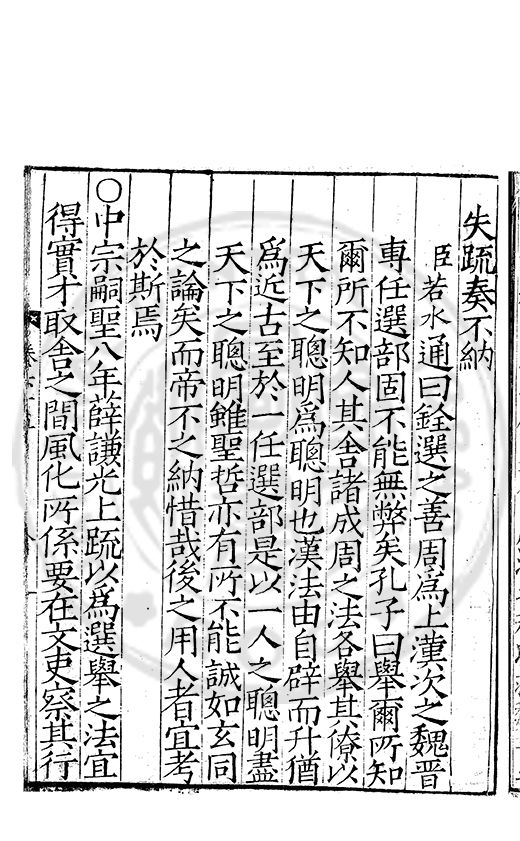 失疏奏不納
臣若水通曰銓選之善周爲上漢次之魏晋
專任選部固不能無弊矣孔子曰舉爾所知
爾所不知人其舍諸成周之法各舉其僚以
天下之聰明爲聰明也漢法由自辟而升猶
爲近古至於一任選部是以一人之聰明盡
天下之聰明雖聖哲亦有所不能誠如玄同
之論矣而帝不之納惜哉後之用人者宜考
於斯焉
○中宗嗣聖八年薛謙光上疏以爲選舉之法宜
得實才取舍之間風化所係要在文吏察其行